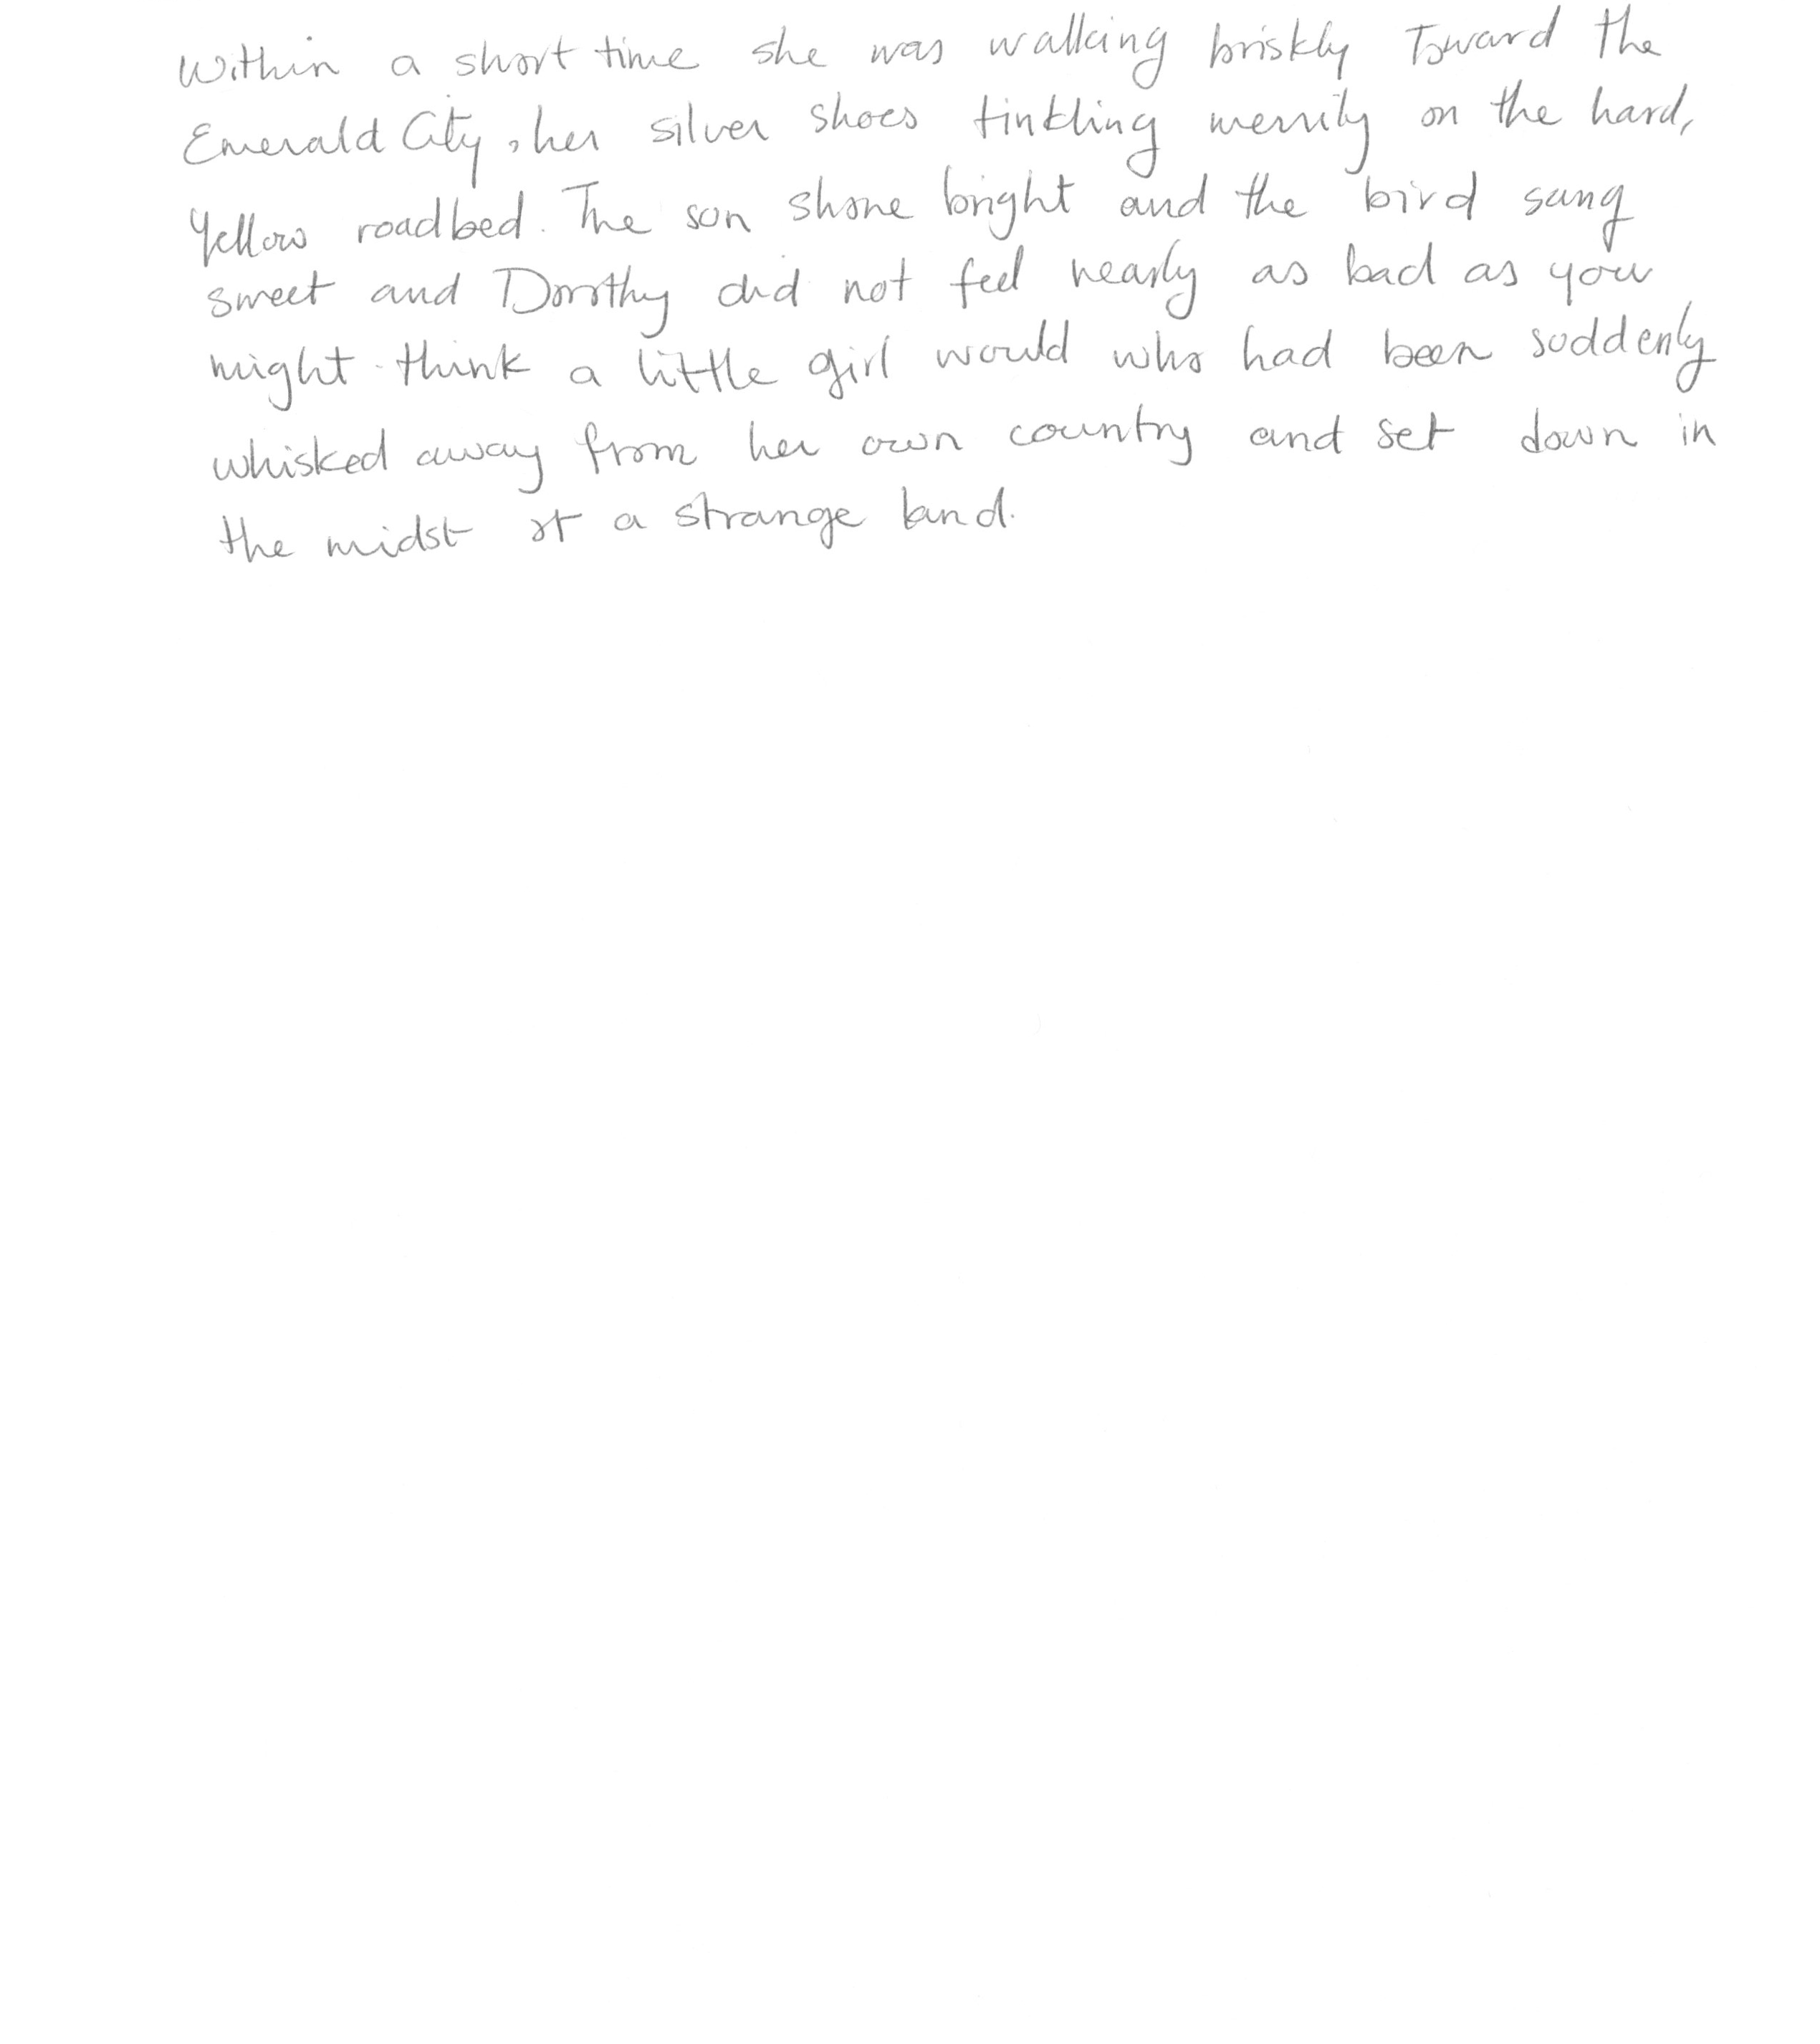 Within a short time she was walking briskly Toward the
Emerald City, her silver shoes tinkling merrily on the hard,
Yellow roadbed. The son shone bright and the bird sang
sweet and Dorothy did not feel nearly as bad as you
might think a little girl would who had been suddenly
whisked away from her own country and set down in
the midst of a strange land.